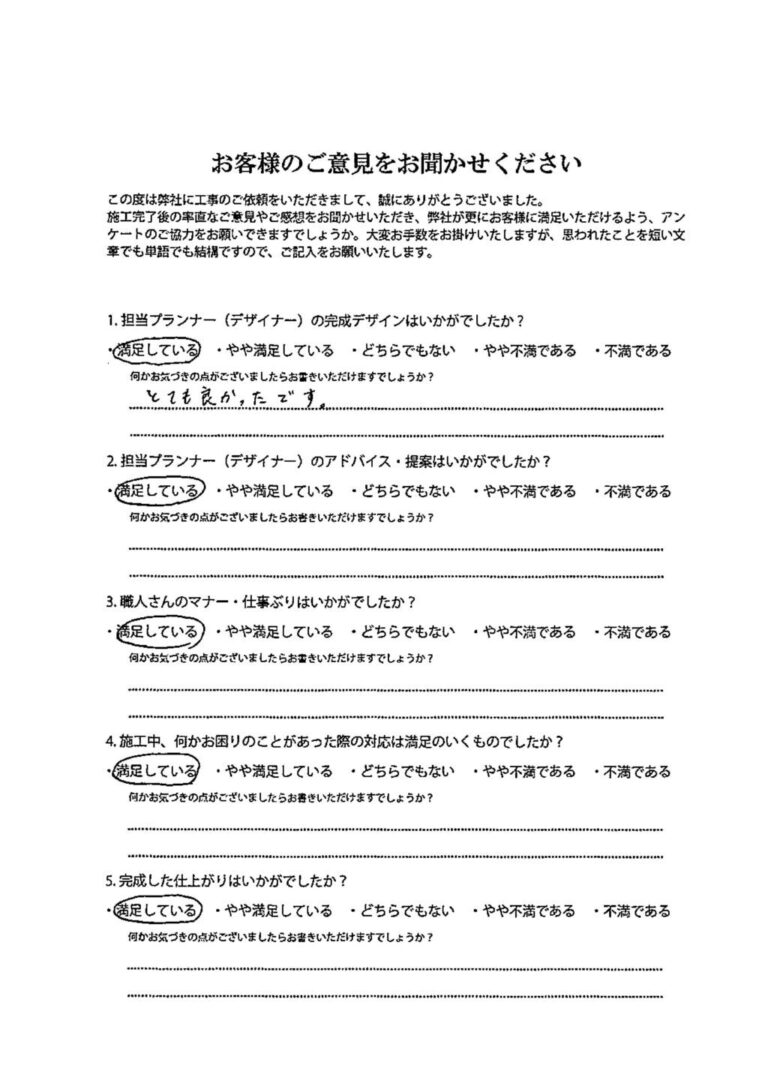 お客様のご意見をお聞かせください
この度は弊社に工事のご依頼をいただきまして、誠にありがとうございました。
施工完了後の率直なご意見やご感想をお聞かせいただき、弊社が更にお客様に満足いただけるよう、アン
ケートのご協力をお願いできますでしょうか。大変お手数をお掛けいたしますが、思われたことを短い文
章でも単語でも結構ですので、ご記入をお願いいたします。
1. 担当プランナー（デザイナー）の完成デザインはいかがでしたか？
・満足している ・やや満足している ・どちらでもない ・やや不満である ・不満である
何かお気づきの点がございましたらお書きいただけますでしょうか？
とても良かったです。
2. 担当プランナー（デザイナー）のアドバイス・提案はいかがでしたか？
・満足している ・やや満足している ・どちらでもない ・やや不満である ・不満である
何かお気づきの点がございましたらお書きいただけますでしょうか？
3. 職人さんのマナー・仕事ぶりはいかがでしたか？
・満足している ・やや満足している ・どちらでもない ・やや不満である ・不満である
何かお気づきの点がございましたらお書きいただけますでしょうか？
4. 施工中、何かお困りのことがあった際の対応は満足のいくものでしたか？
・満足している ・やや満足している ・どちらでもない ・やや不満である ・不満である
何かお気づきの点がございましたらお書きいただけますでしょうか？
5. 完成した仕上がりはいかがでしたか？
・満足している ・やや満足している ・どちらでもない ・やや不満である ・不満である
何かお気づきの点がございましたらお書きいただけますでしょうか？